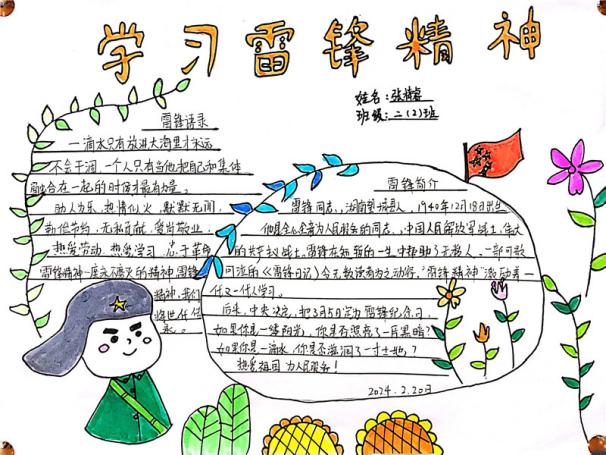 学习雷锋精神
姓名:张
班级:二(2)班
雷锋语录
一滴水只有放进大海里才永远
不会干涸,一个人只有当他把自己和集体
融合在一起的时候才最有力量。
助人为乐,热情似火,默默无闻,
勤俭节约,无私贡献,爱岗敬业,
热爱劳动,热爱学习,忠于革命
雷锋精神一座永不熄灭的精神,雷锋
精神,我们
将世代传
承。
雷锋简介
雷锋同志,湖南望城县人,1940年12月18日出生
他是全心全意为人民服务的同志,中国人民解放军战士,伟大
的共产主义战士,雷锋在短暂的一生中帮助了无数人,一部可歌
可泣的《雷锋日记》令无数读者为之动容,"雷锋精神"激励着一
代又一代人学习。
后来,中央决定,把3月5日定为雷锋纪念日,
如果你是一缕阳光,你是否照亮了一片黑暗?
如果你是一滴水,你是否滋润了一寸土地?
热爱祖国 为人民服务!
2024.2.20日